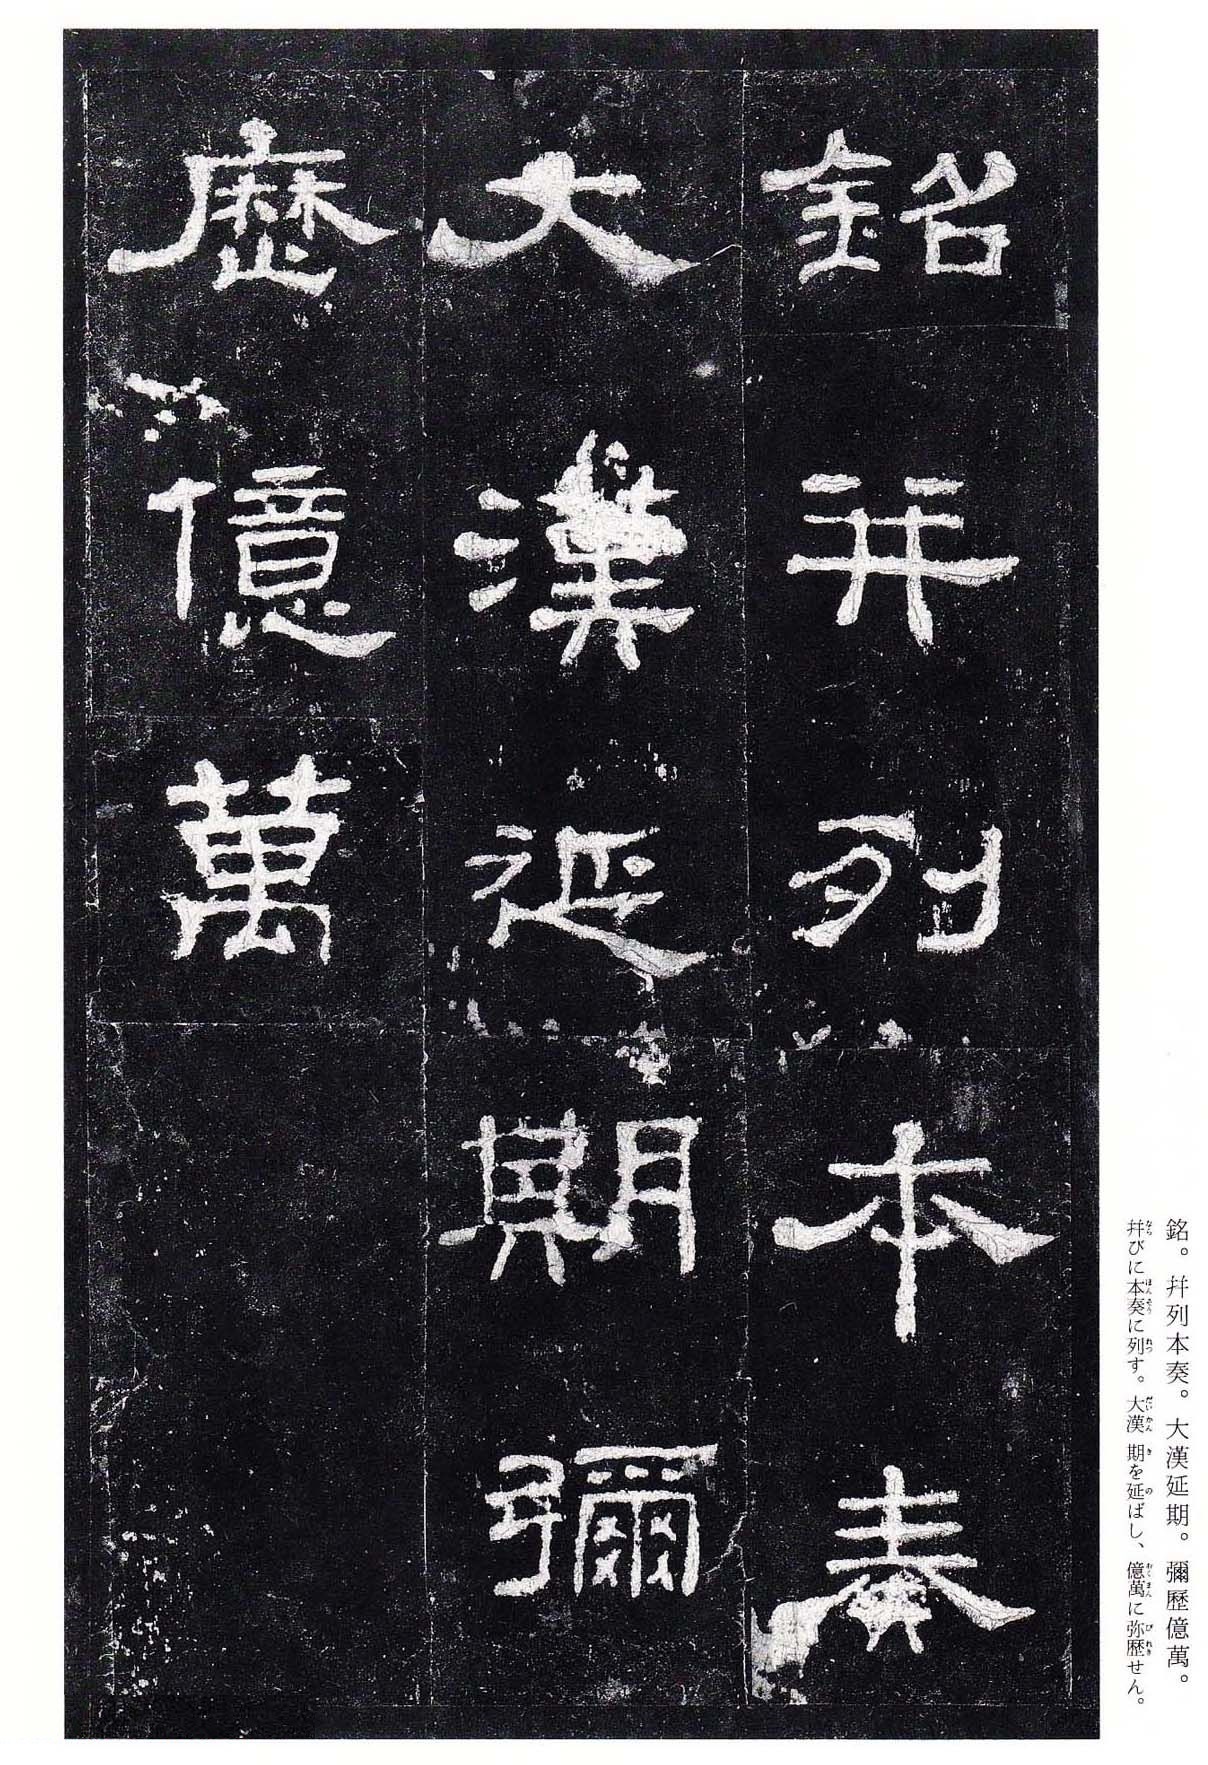 銘。幷列本奏。大漢延期。彌歷億萬。
幷びに本奏に列す。大漢 期を延ばし、億萬に弥歴せん。
銘幷列本奏
大漢延期彌
歷億萬